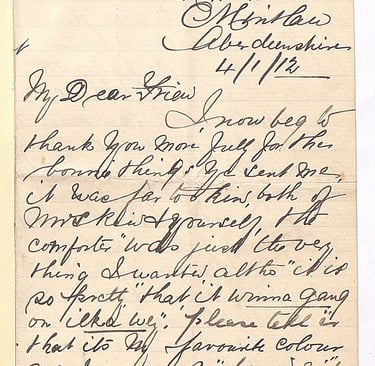 Mintlaw
Aberdeenshire
4/1/12
My Dear Frien
I now beg to
thank you more fully for the
bonnie things ye sent me.
it was far to kin, both of
Mrs & yourself, the
comforter" was just the very
thing I wanted altho "it is
so pretty" that "it winna gang
on "ilka wey". "please tell "er
that its my favourite colour